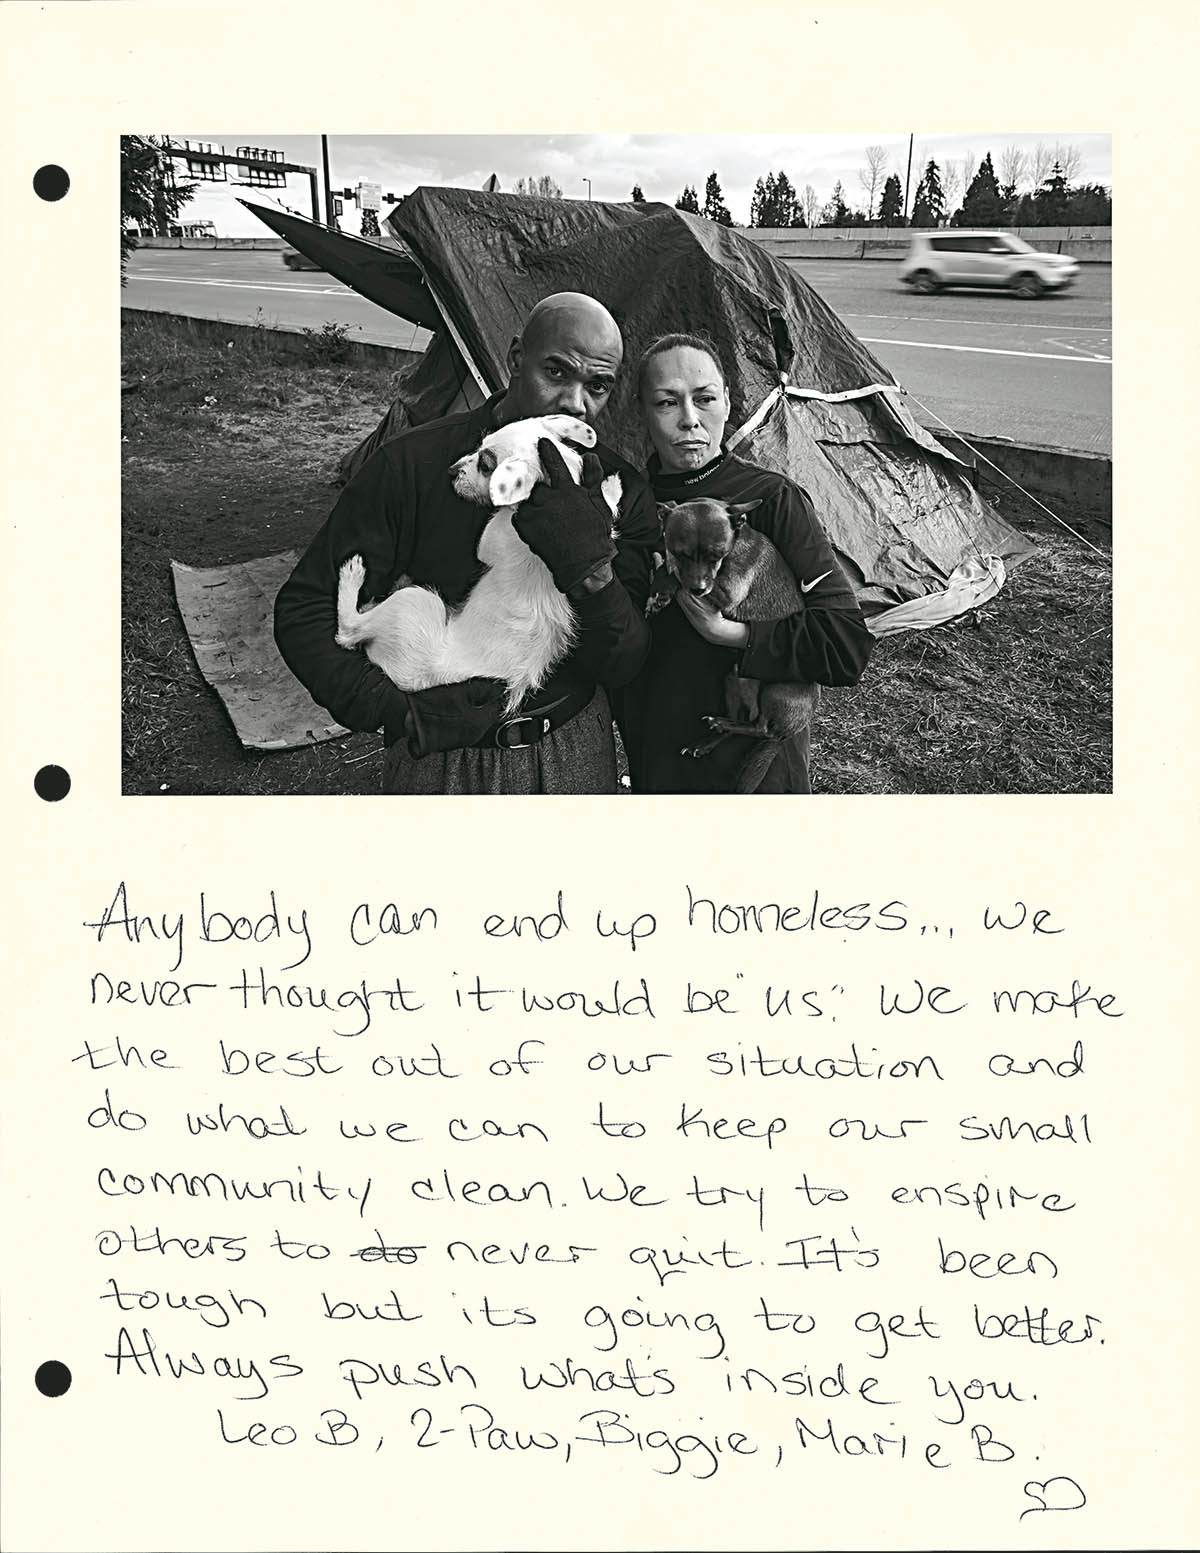 new balance
Anybody can end up homeless... we
never thought it would be "us". We make
the best out of our situation and
do what we can to keep our small
community clean. We try to enspire
others to do never quit. It's been
tough but its going to get better.
Always push what's inside you.
Leo B, 2-Paw, Biggie, Marie B.